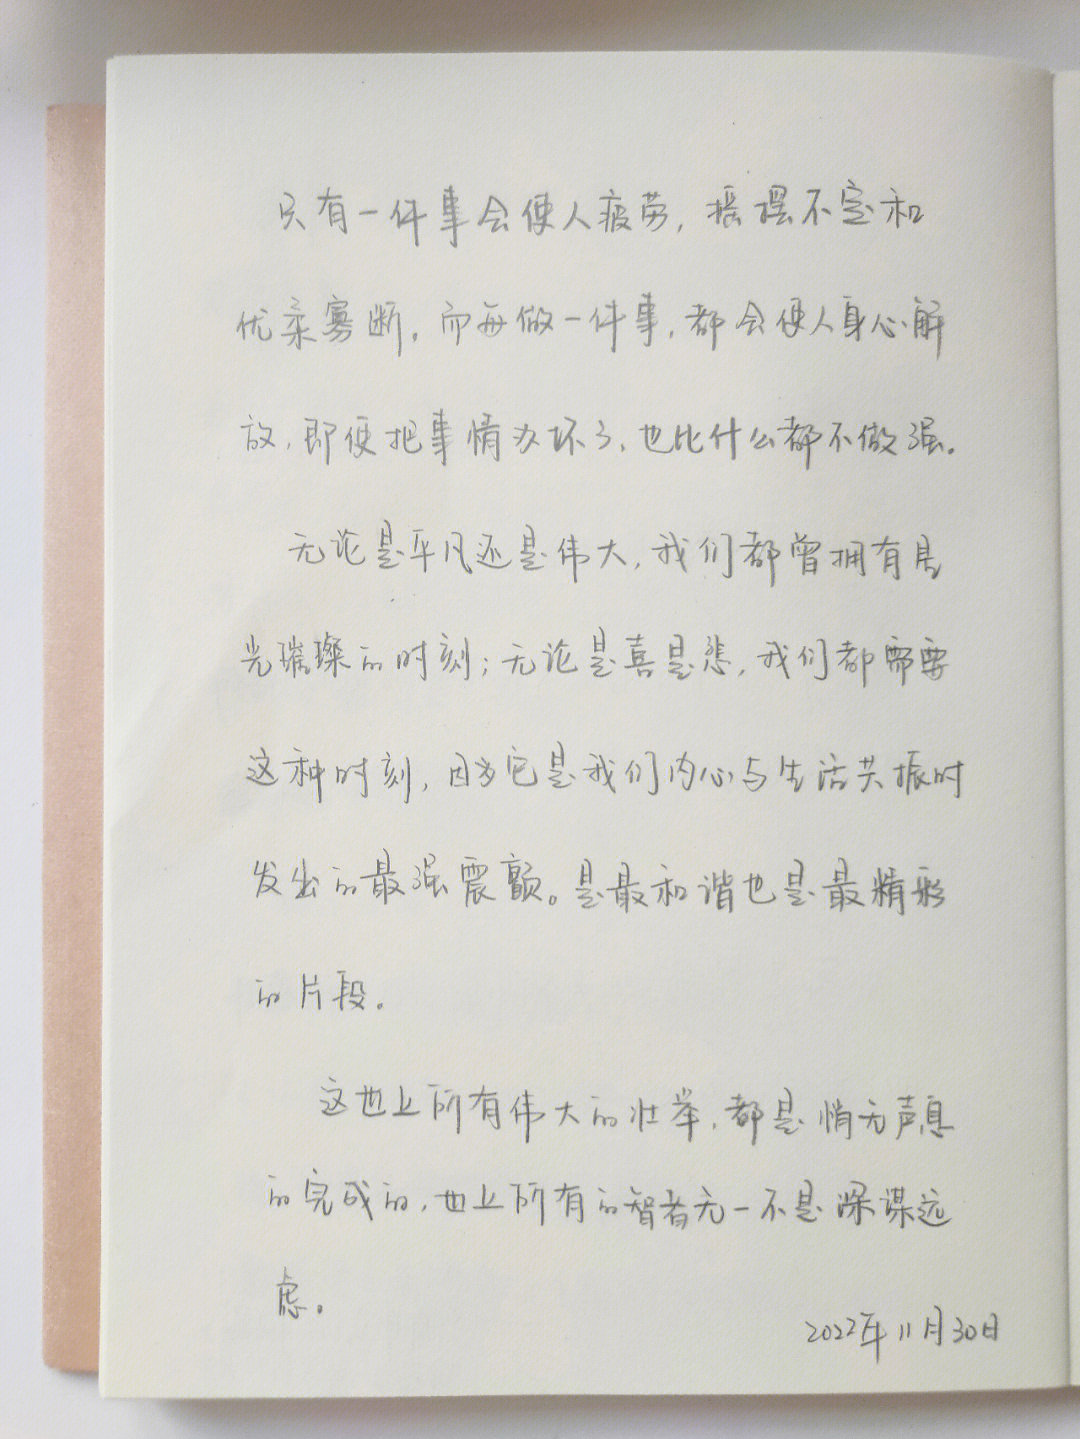 只有一件事会使人疲劳，摇摆不定和
优柔寡断。而每做一件事，都会使人身心解
放，即使把事情办坏了，也比什么都不做强。
无论是平凡还是伟大，我们都曾拥有星
光璀璨的时刻；无论是喜是悲，我们都需要
这种时刻，因为它是我们内心与生活共振时
发出的最强震颤。是最和谐也是最精彩
的片段。
这世上所有伟大的壮举，都是悄无声息
的完成的，世上所有的智者无一不是深谋远
虑。
2022年11月30日